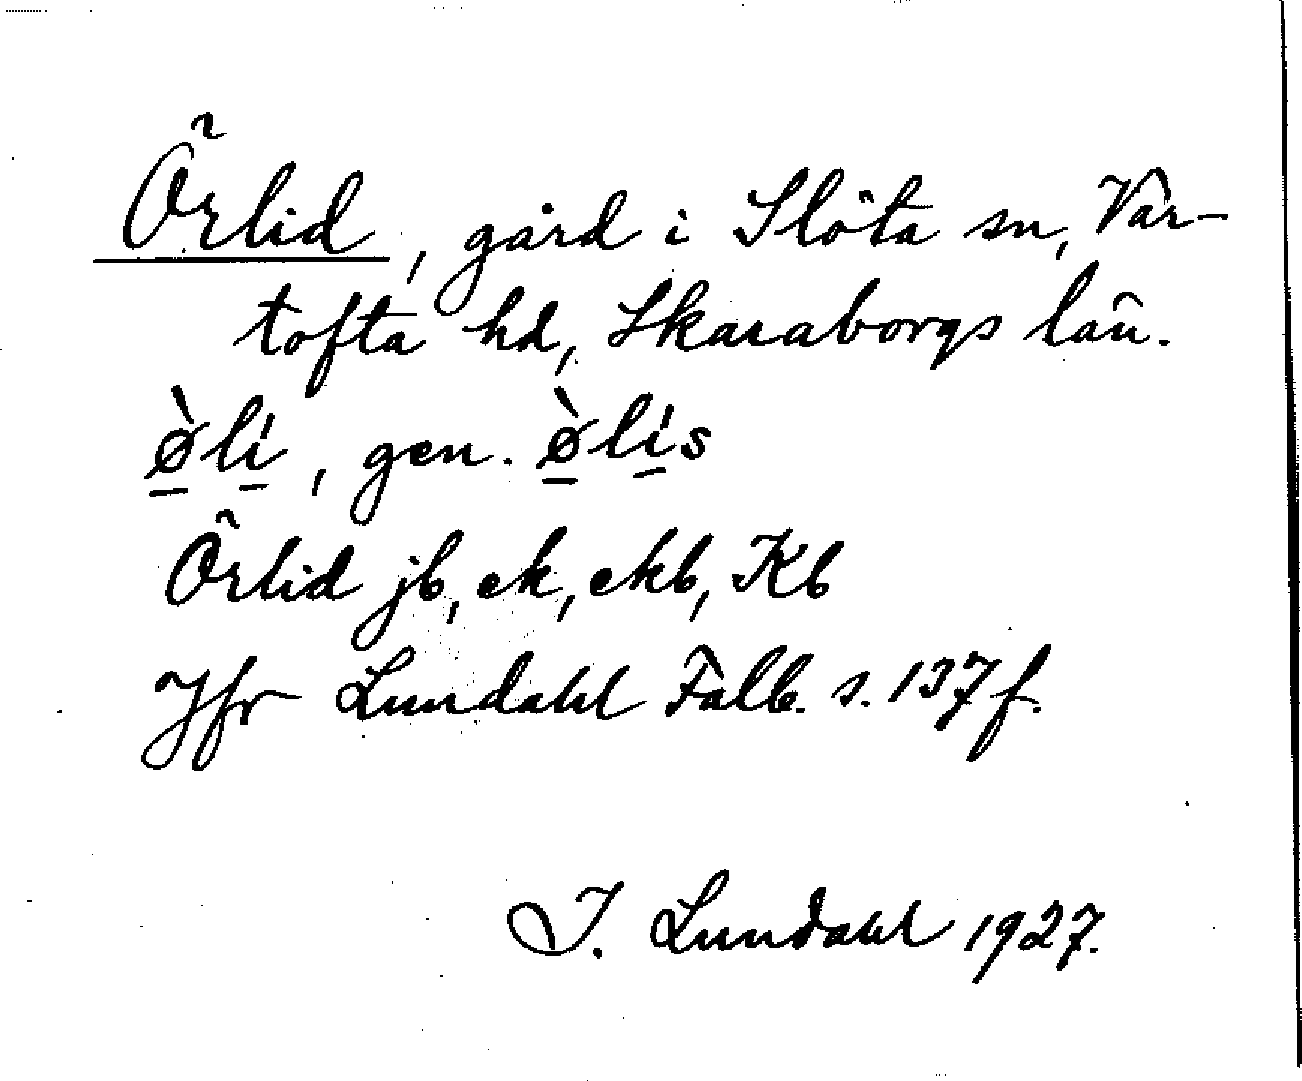 Örlid, gård i Slöta sn, Var-
tofta hd, Skaraborgs län.
ø̀lí, gen. ø̀lís
Örlid jb, ek, ekb, Kb
Jfr Lundahl Falb. s. 137 f.
I. Lundahl 1927.